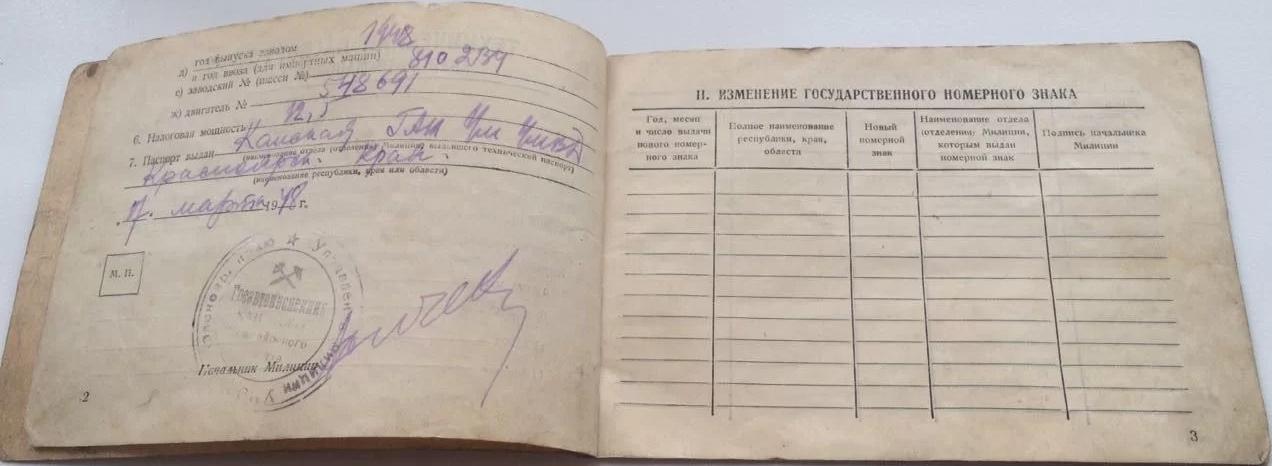 д) год выпуска заводом 1948
и год ввоза (для импортных машин)
е) заводский № (шасси №) 810234
ж) двигатель № 548691
6. Налоговая мощность 12,5
7. Паспорт выдан Канской ГАИ
(наименование отдела (отделения) Милиции, выдавшего технический паспорт)
край
(наименование республики, края или области)
марта 1948 г.
М. П.
Госавтоинспекция
Начальник Милиции
2
II. ИЗМЕНЕНИЕ ГОСУДАРСТВЕННОГО НОМЕРНОГО ЗНАКА
Год, месяц и число выдачи нового номер- ного знака
Полное наименование республики, края, области
Новый номерной знак
Наименование отдела (отделения) Милиции, которым выдан номерной знак
Подпись начальника Милиции
3